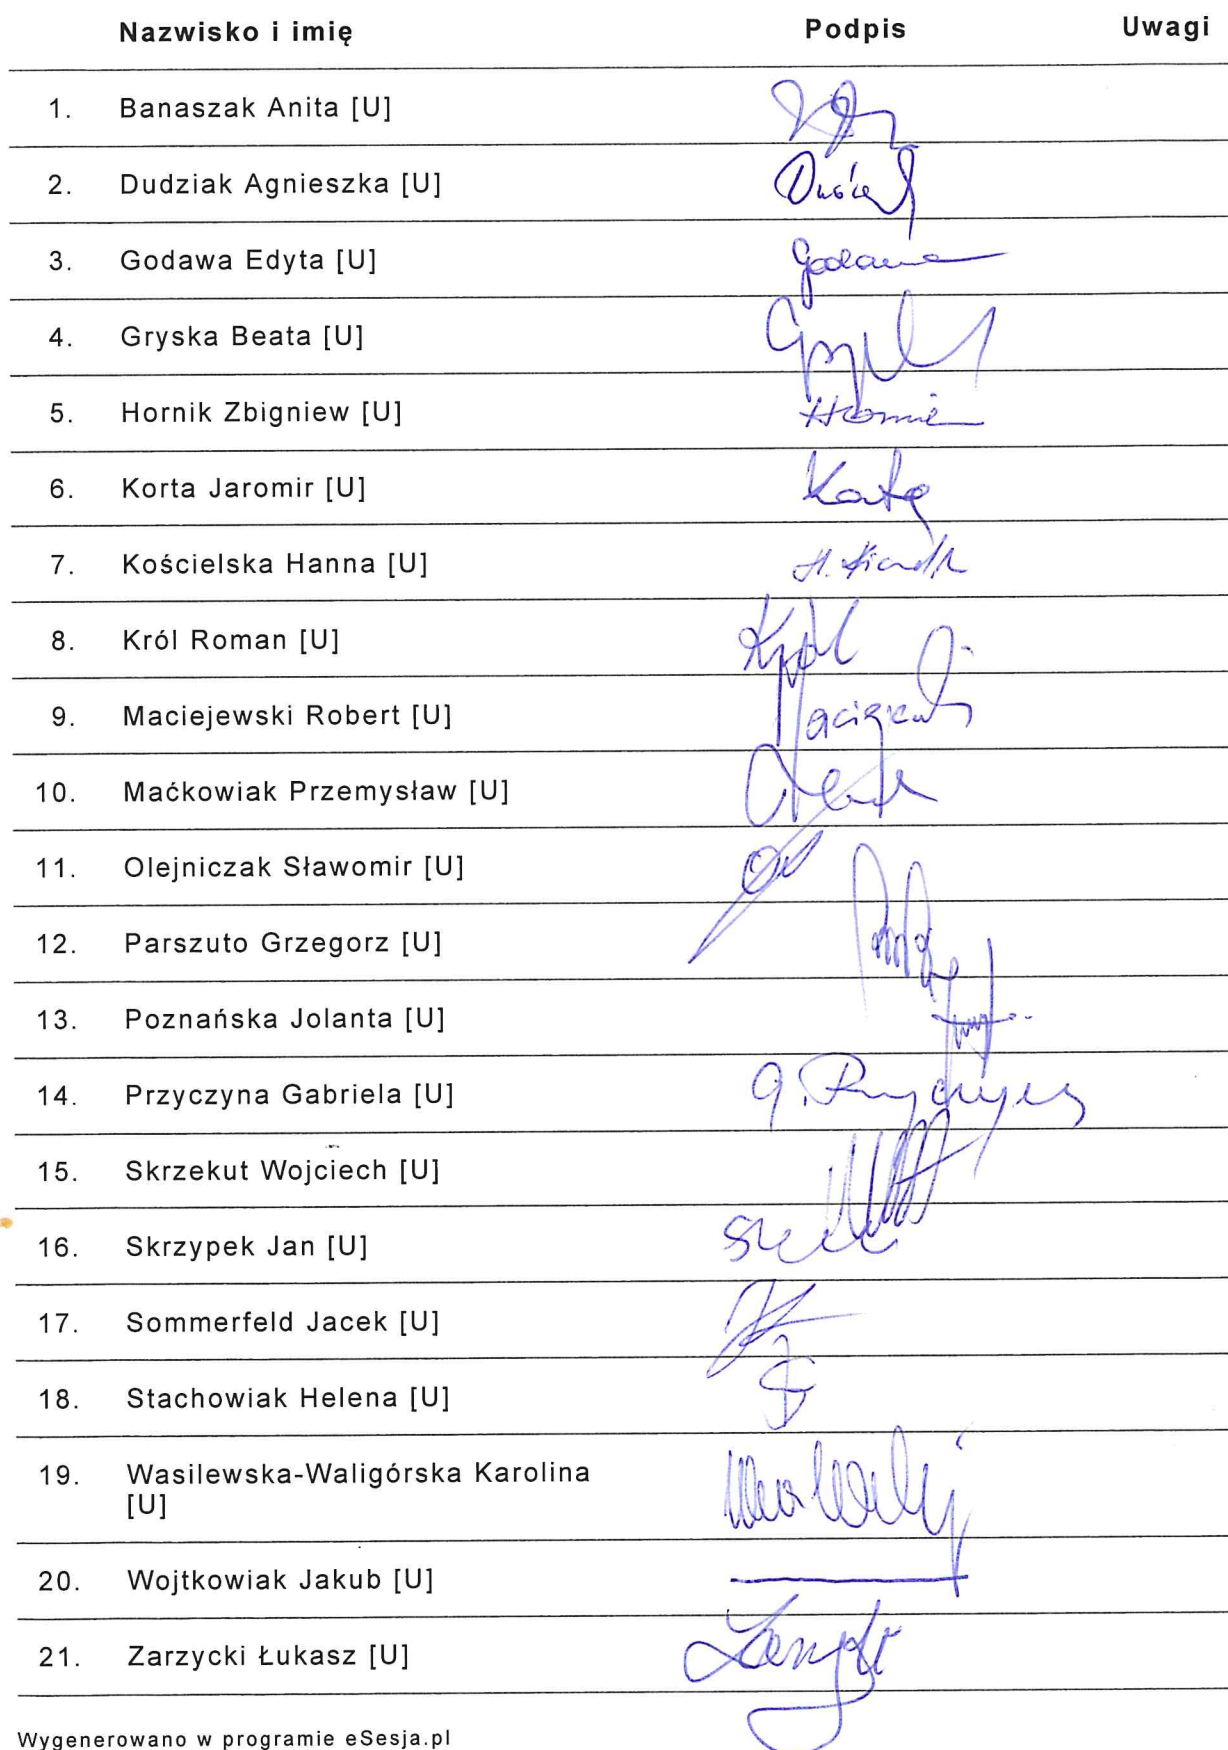 Nazwisko i imię Podpis Uwagi
1. Banaszak Anita [U]
2. Dudziak Agnieszka [U]
3. Godawa Edyta [U] Godawa
4. Gryska Beata [U]
5. Hornik Zbigniew [U]
6. Korta Jaromir [U] Korta
7. Kościelska Hanna [U] H.
8. Król Roman [U] Król
9. Maciejewski Robert [U]
10. Maćkowiak Przemysław [U]
11. Olejniczak Sławomir [U]
12. Parszuto Grzegorz [U]
13. Poznańska Jolanta [U]
14. Przyczyna Gabriela [U] G. Przyczyna
15. Skrzekut Wojciech [U]
16. Skrzypek Jan [U]
17. Sommerfeld Jacek [U]
18. Stachowiak Helena [U]
19. Wasilewska-Waligórska Karolina
[U]
20. Wojtkowiak Jakub [U]
21. Zarzycki Łukasz [U]
Wygenerowano w programie eSesja.pl